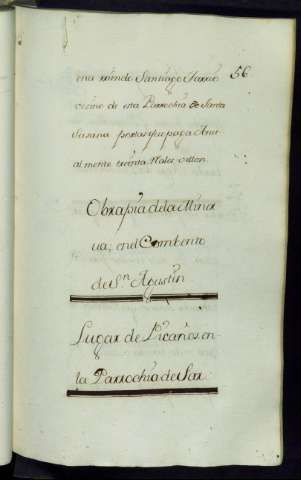 56
ona xxinde Santiago
vecino de esta Parrochia de Santa
Susana por los que paga Anu-
almente treinta Rales vellon
Obrapia de la Miner
va, en el Combento
de Sn. Agustin
Lugar de Picaños en
la Parrochia del Sar